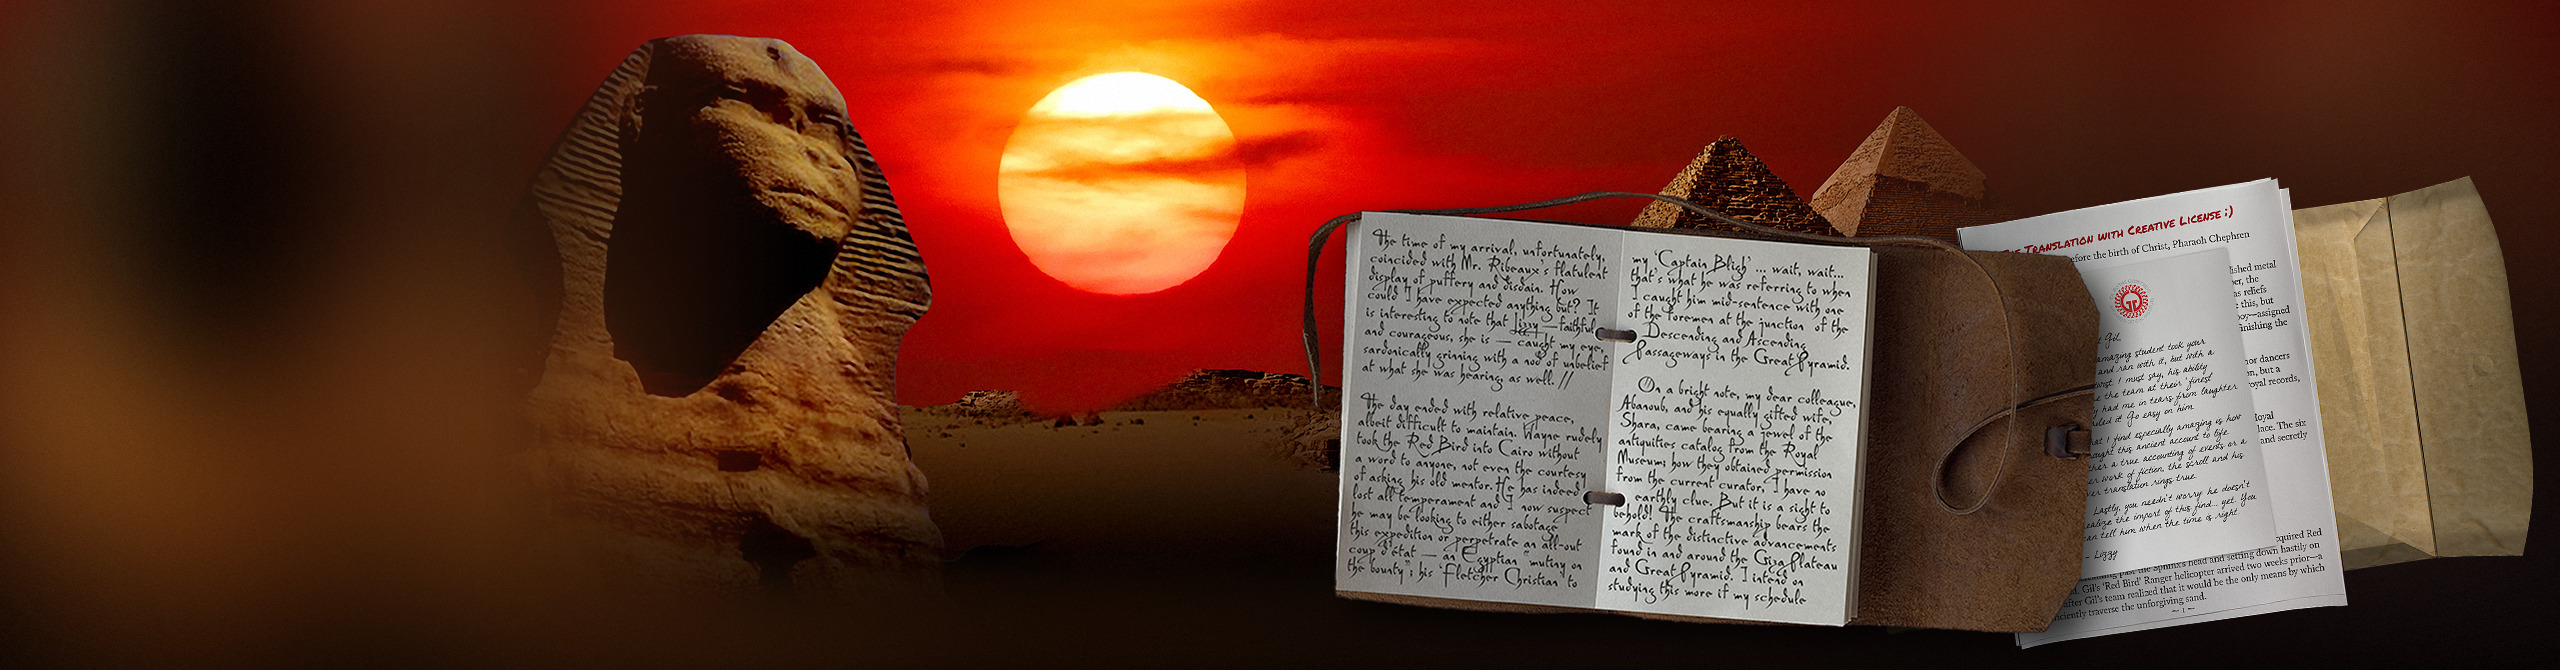 The time of my arrival, unfortunately,
coincided with Mr. Ribeaux's flatulent
display of puffery and disdain. How
could I have expected anything but? It
is interesting to note that Lizzy — faithful
and courageous, she is — caught my eye,
sardonically grinning with a nod of unbelief
at what she was hearing as well. //
The day ended with relative peace,
albeit difficult to maintain. Wayne rudely
took the Red Bird into Cairo without
a word to anyone, not even the courtesy
of asking his old mentor. He has indeed
lost all temperament and I now suspect
he may be looking to either sabotage
this expedition or perpetrate an all-out
coup d'état — an Egyptian "mutiny on
the bounty"; his 'Fletcher Christian' to
my 'Captain Bligh' ... wait, wait...
that's what he was referring to when
I caught him mid-sentence with one
of the foremen at the junction of the
Descending and Ascending
Passageways in the Great Pyramid.
On a bright note, my dear colleague,
Abanoub, and his equally gifted wife,
Shara, came bearing a jewel of the
antiquities catalog from the Royal
Museum; how they obtained permission
from the current curator, I have no
earthly clue. But it is a sight to
behold! The craftsmanship bears the
mark of the distinctive advancements
found in and around the Giza Plateau
and Great Pyramid. I intend on
studying this more if my schedule
Translation with Creative License ;)
efore the birth of Christ, Pharaoh Chephren
lished metal
er, the
as reliefs
this, but
assigned
finishing the
or dancers
on, but a
royal records,
loyal
lace. The six
and secretly
Gil,
amazing student took your
and ran with it, but with a
twist I must say, his ability
the team at their 'finest
had me in tears from laughter
Go easy on him.
I find especially amazing is how
this ancient account to life
a true accounting of events or a
work of fiction, the scroll and his
translation rings true.
Lastly, you needn't worry he doesn't
realize the import of this find... yet. You
can tell him when the time is right
- Lizzy
cquired Red
past the Sphinx's head and setting down hastily on
Gil's 'Red Bird' Ranger helicopter arrived two weeks prior—a
after Gil's team realized that it would be the only means by which
ficiently traverse the unforgiving sand.